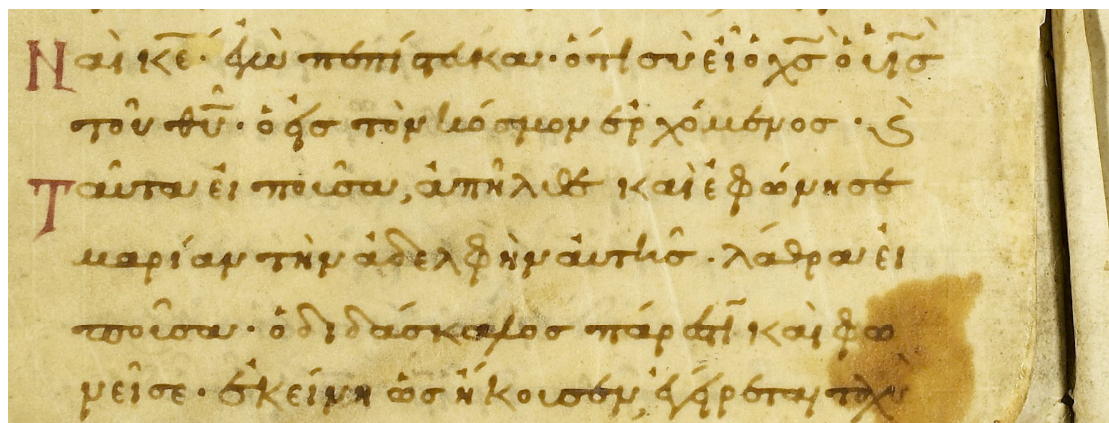 Ναὶ κε̅· ἐγὼ πεπίστευκα· ὅτι σὺ εἶ ὁ χς̅ ὁ υἱὸς
τοῦ θυ̅· ὁ εἰς τὸν κόσμον ἐρχόμενος· Καὶ
Ταῦτα εἰποῦσα, ἀπῆλθε καὶ ἐφώνησε
μαρίαν τὴν ἀδελφὴν αὐτῆς· λάθρα εἰ
ποῦσα· ὁ διδάσκαλος πάρεστι καὶ φω
νεῖ σε· ἐκείνη ὡς ἤκουσεν, ἐγείρεται ταχὺ